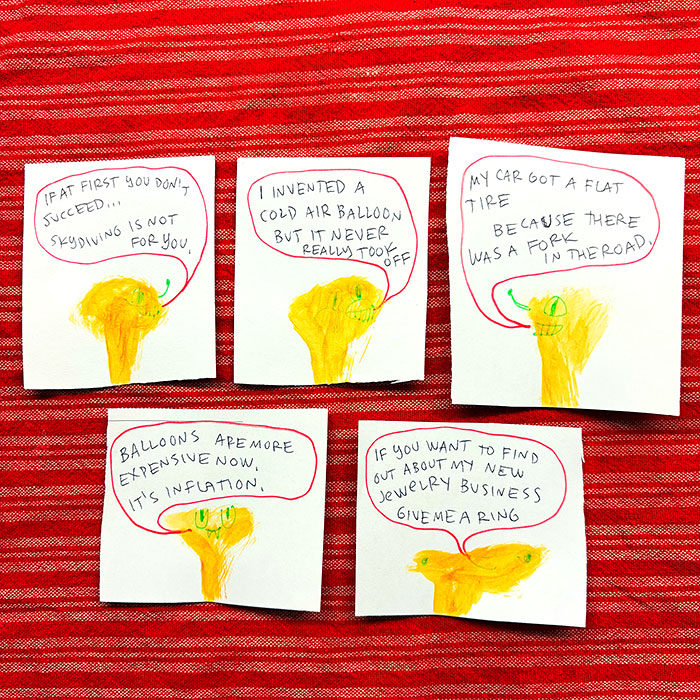 IF AT FIRST YOU DON'T
SUCCEED...
SKYDIVING IS NOT
FOR YOU.
I INVENTED A
COLD AIR BALLOON
BUT IT NEVER
REALLY TOOK
OFF
MY CAR GOT A FLAT
TIRE
BECAUSE THERE
WAS A FORK
IN THE ROAD.
BALLOONS ARE MORE
EXPENSIVE NOW.
IT'S INFLATION.
IF YOU WANT TO FIND
OUT ABOUT MY NEW
JEWELRY BUSINESS
GIVE ME A RING